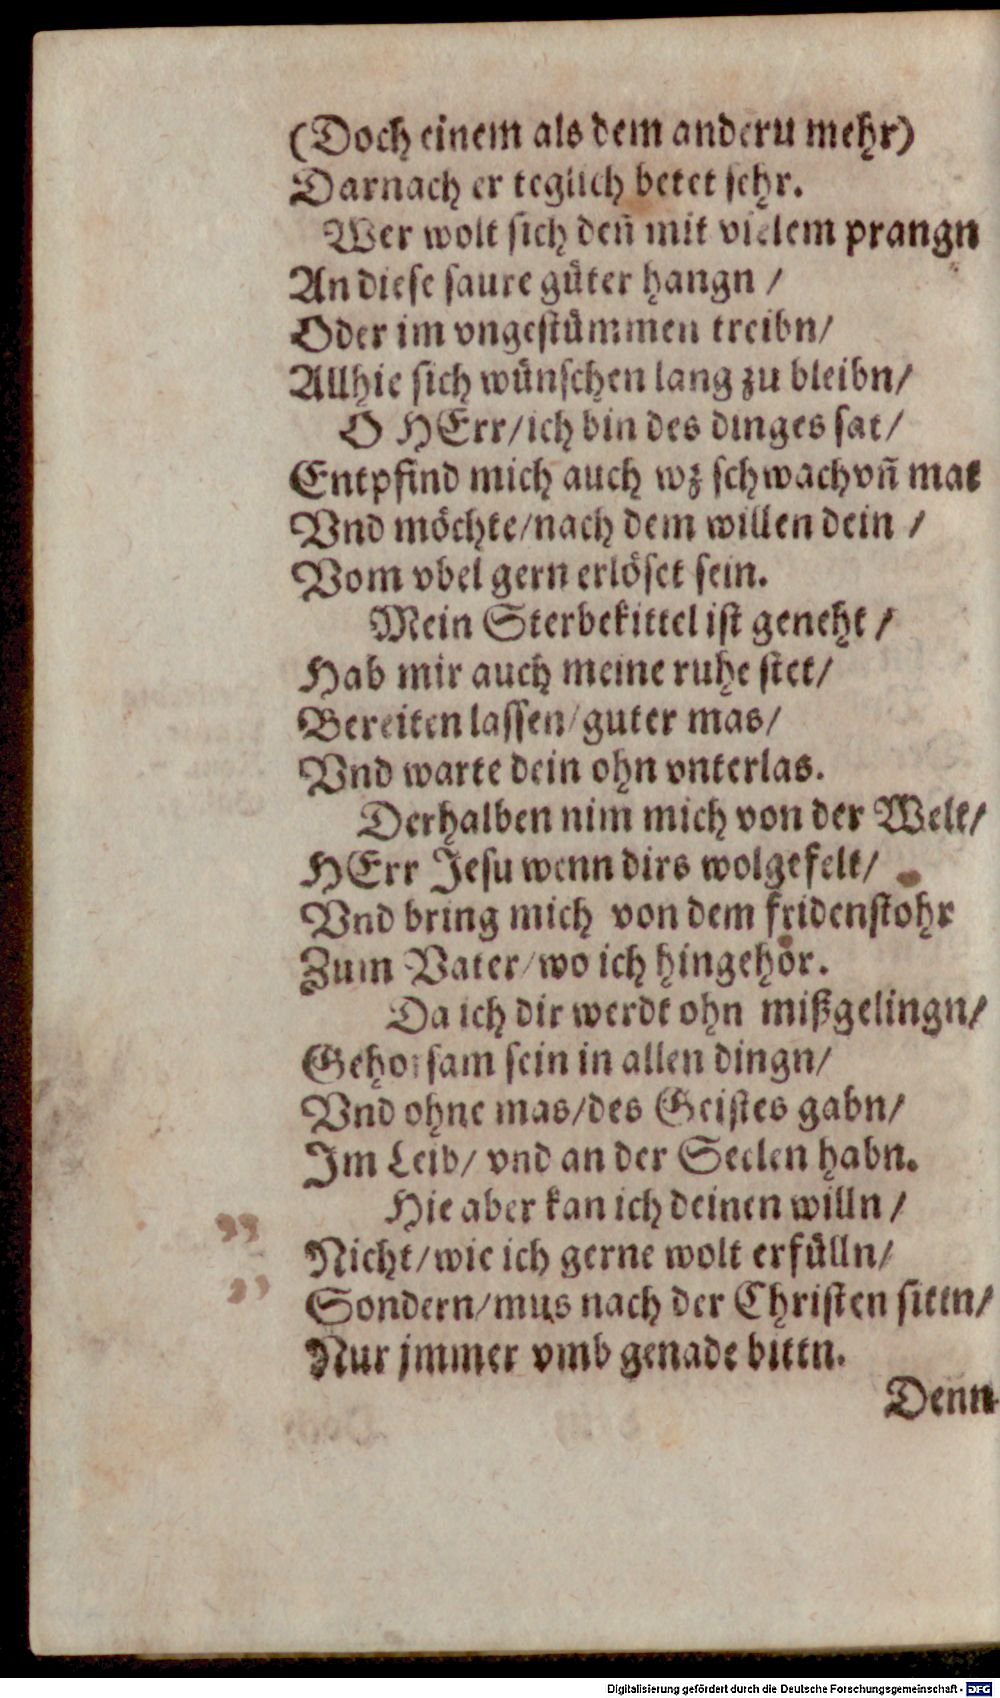 (Doch einem als dem anderu mehr)
Darnach er teglich betet sehr.
Wer wolt sich deñ mit vielem prangn
An diese saure güter hangn /
Oder im vngestümmen treibn/
Allhie sich wünschen lang zu bleibn/
O HErr/ich bin des dinges sat/
Entpfind mich auch wz schwach vñ mat
Vnd möchte/nach dem willen dein /
Vom vbel gern erlöset sein.
Mein Sterbekittel ist geneht /
Hab mir auch meine ruhe stet/
Bereiten lassen/guter mas/
Vnd warte dein ohn vnterlas.
Derhalben nim mich von der Welt/
HErr Jesu wenn dirs wolgefelt/
Vnd bring mich von dem fridenstohr
Zum Vater/wo ich hingehör.
Da ich dir werdt ohn mißgelingn/
Gehorsam sein in allen dingn/
Vnd ohne mas/des Geistes gabn/
Im Leib/ vnd an der Seelen habn.
Hie aber kan ich deinen willn /
„ Nicht/wie ich gerne wolt erfülln/
„ Sondern/mus nach der Christen sittn/
Nur jmmer vmb genade bittn.
Denn
Digitalisierung gefördert durch die Deutsche Forschungsgemeinschaft - DFG